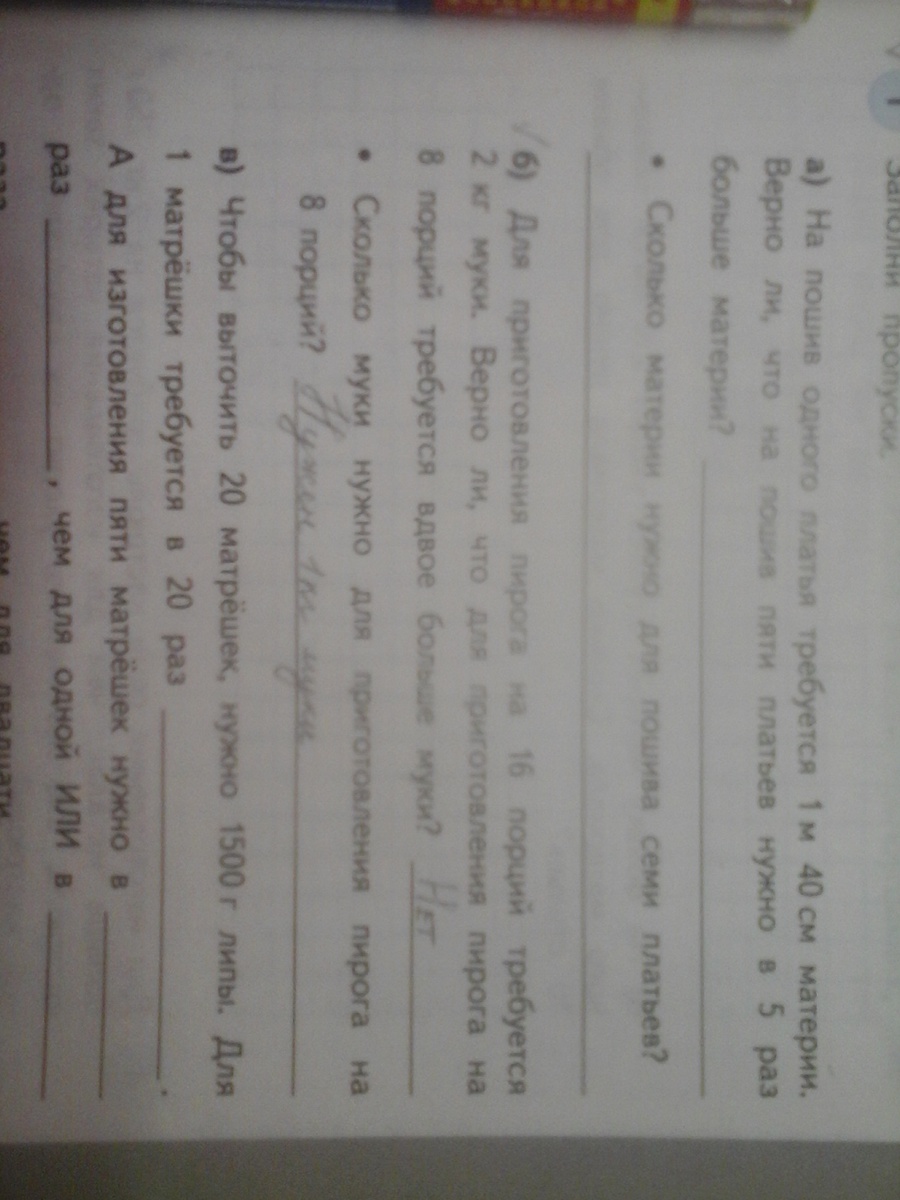 1 Заполни пропуски.
а) На пошив одного платья требуется 1 м 40 см материи.
Верно ли, что на пошив пяти платьев нужно в 5 раз
больше материи?
• Сколько материи нужно для пошива семи платьев?
б) Для приготовления пирога на 16 порций требуется
2 кг муки. Верно ли, что для приготовления пирога на
8 порций требуется вдвое больше муки? Нет
• Сколько муки нужно для приготовления пирога на
8 порций? Нужен 1 кг муки
в) Чтобы выточить 20 матрёшек, нужно 1500 г липы. Для
1 матрёшки требуется в 20 раз .
А для изготовления пяти матрёшек нужно в
раз , чем для одной ИЛИ в
раза чем для двадцати